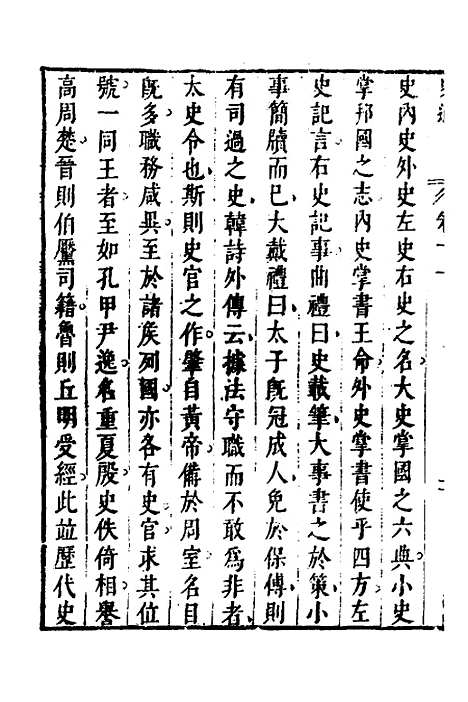 史內史外史左史右史之名大史掌國之六典小史
掌邦國之志內史掌書王命外史掌書使乎四方左
史記言右史記事曲禮曰史載筆大事書之於策小
事簡牘而已大戴禮曰太子旣冠成人免於保傅則
有司過之史韓詩外傳云據法守職而不敢爲非者
太史令也斯則史官之作肇自黃帝備於周室名目
旣多職務咸異至於諸矦列國亦各有史官求其位
號一同王者至如孔甲尹逸名重夏殷史佚倚相譽
高周楚晉則伯黶司籍魯則丘明受經此並歷代史